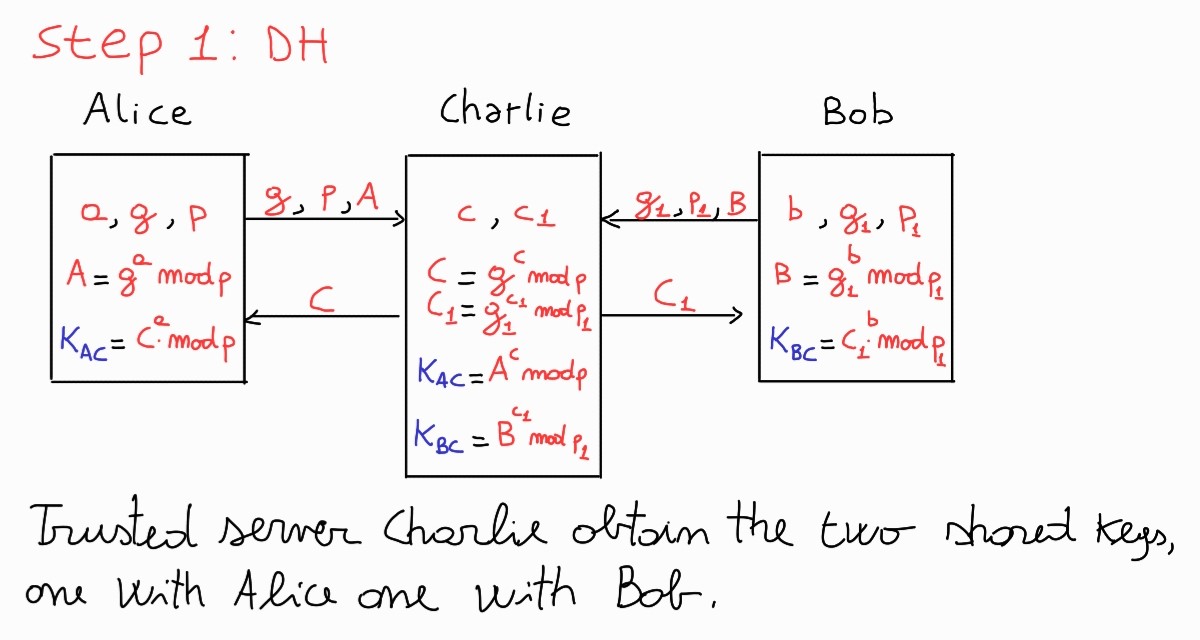 Step 1: DH
Alice Charlie Bob
a, g, p
A = g^a mod p
K_AC = C^a mod p
g, p, A
C
c, c_1
C = g^c mod p
C_1 = g_1^c_1 mod p_1
K_AC = A^c mod p
K_BC = B^c_1 mod p_1
g_1, p_1, B
C_1
b, g_1, p_1
B = g_1^b mod p_1
K_BC = C_1^b mod p_1
Trusted server Charlie obtain the two shared keys,
one with Alice one with Bob.